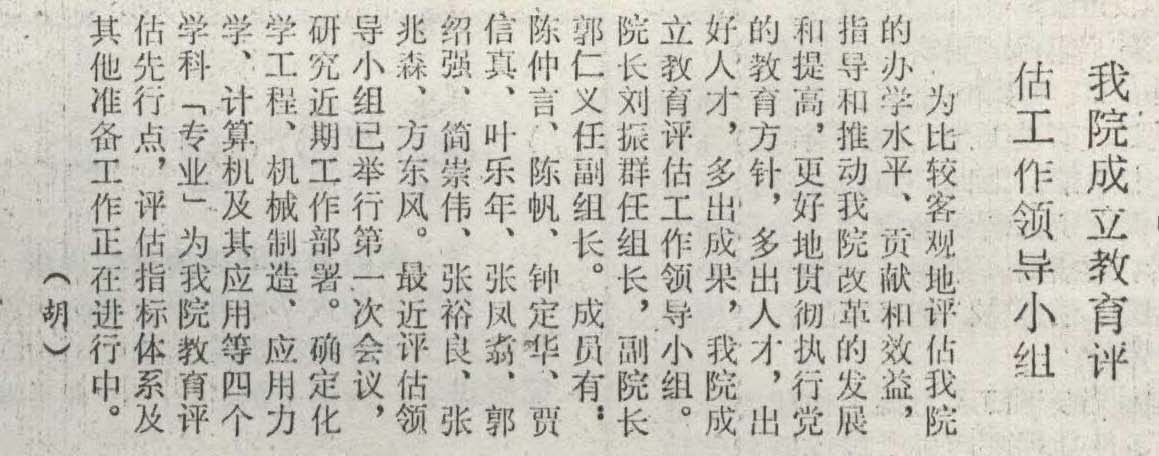 我院成立教育评
估工作领导小组
为比较客观地评估我院
的办学水平、贡献和效益，
指导和推动我院改革的发展
和提高，更好地贯彻执行党
的教育方针，多出人才，出
好人才，多出成果，我院成
立教育评估工作领导小组。
院长刘振群任组长，副院长
郭仁义任副组长。成员有：
陈仲言、陈帆、钟定华、贾
信真、叶乐年、张凤翥、郭
绍强、简崇伟、张裕良、张
兆森、方东风。最近评估领
导小组已举行第一次会议，
研究近期工作部署。确定化
学工程、机械制造、应用力
学、计算机及其应用等四个
学科「专业」为我院教育评
估先行点，评估指标体系及
其他准备工作正在进行中。
（胡）